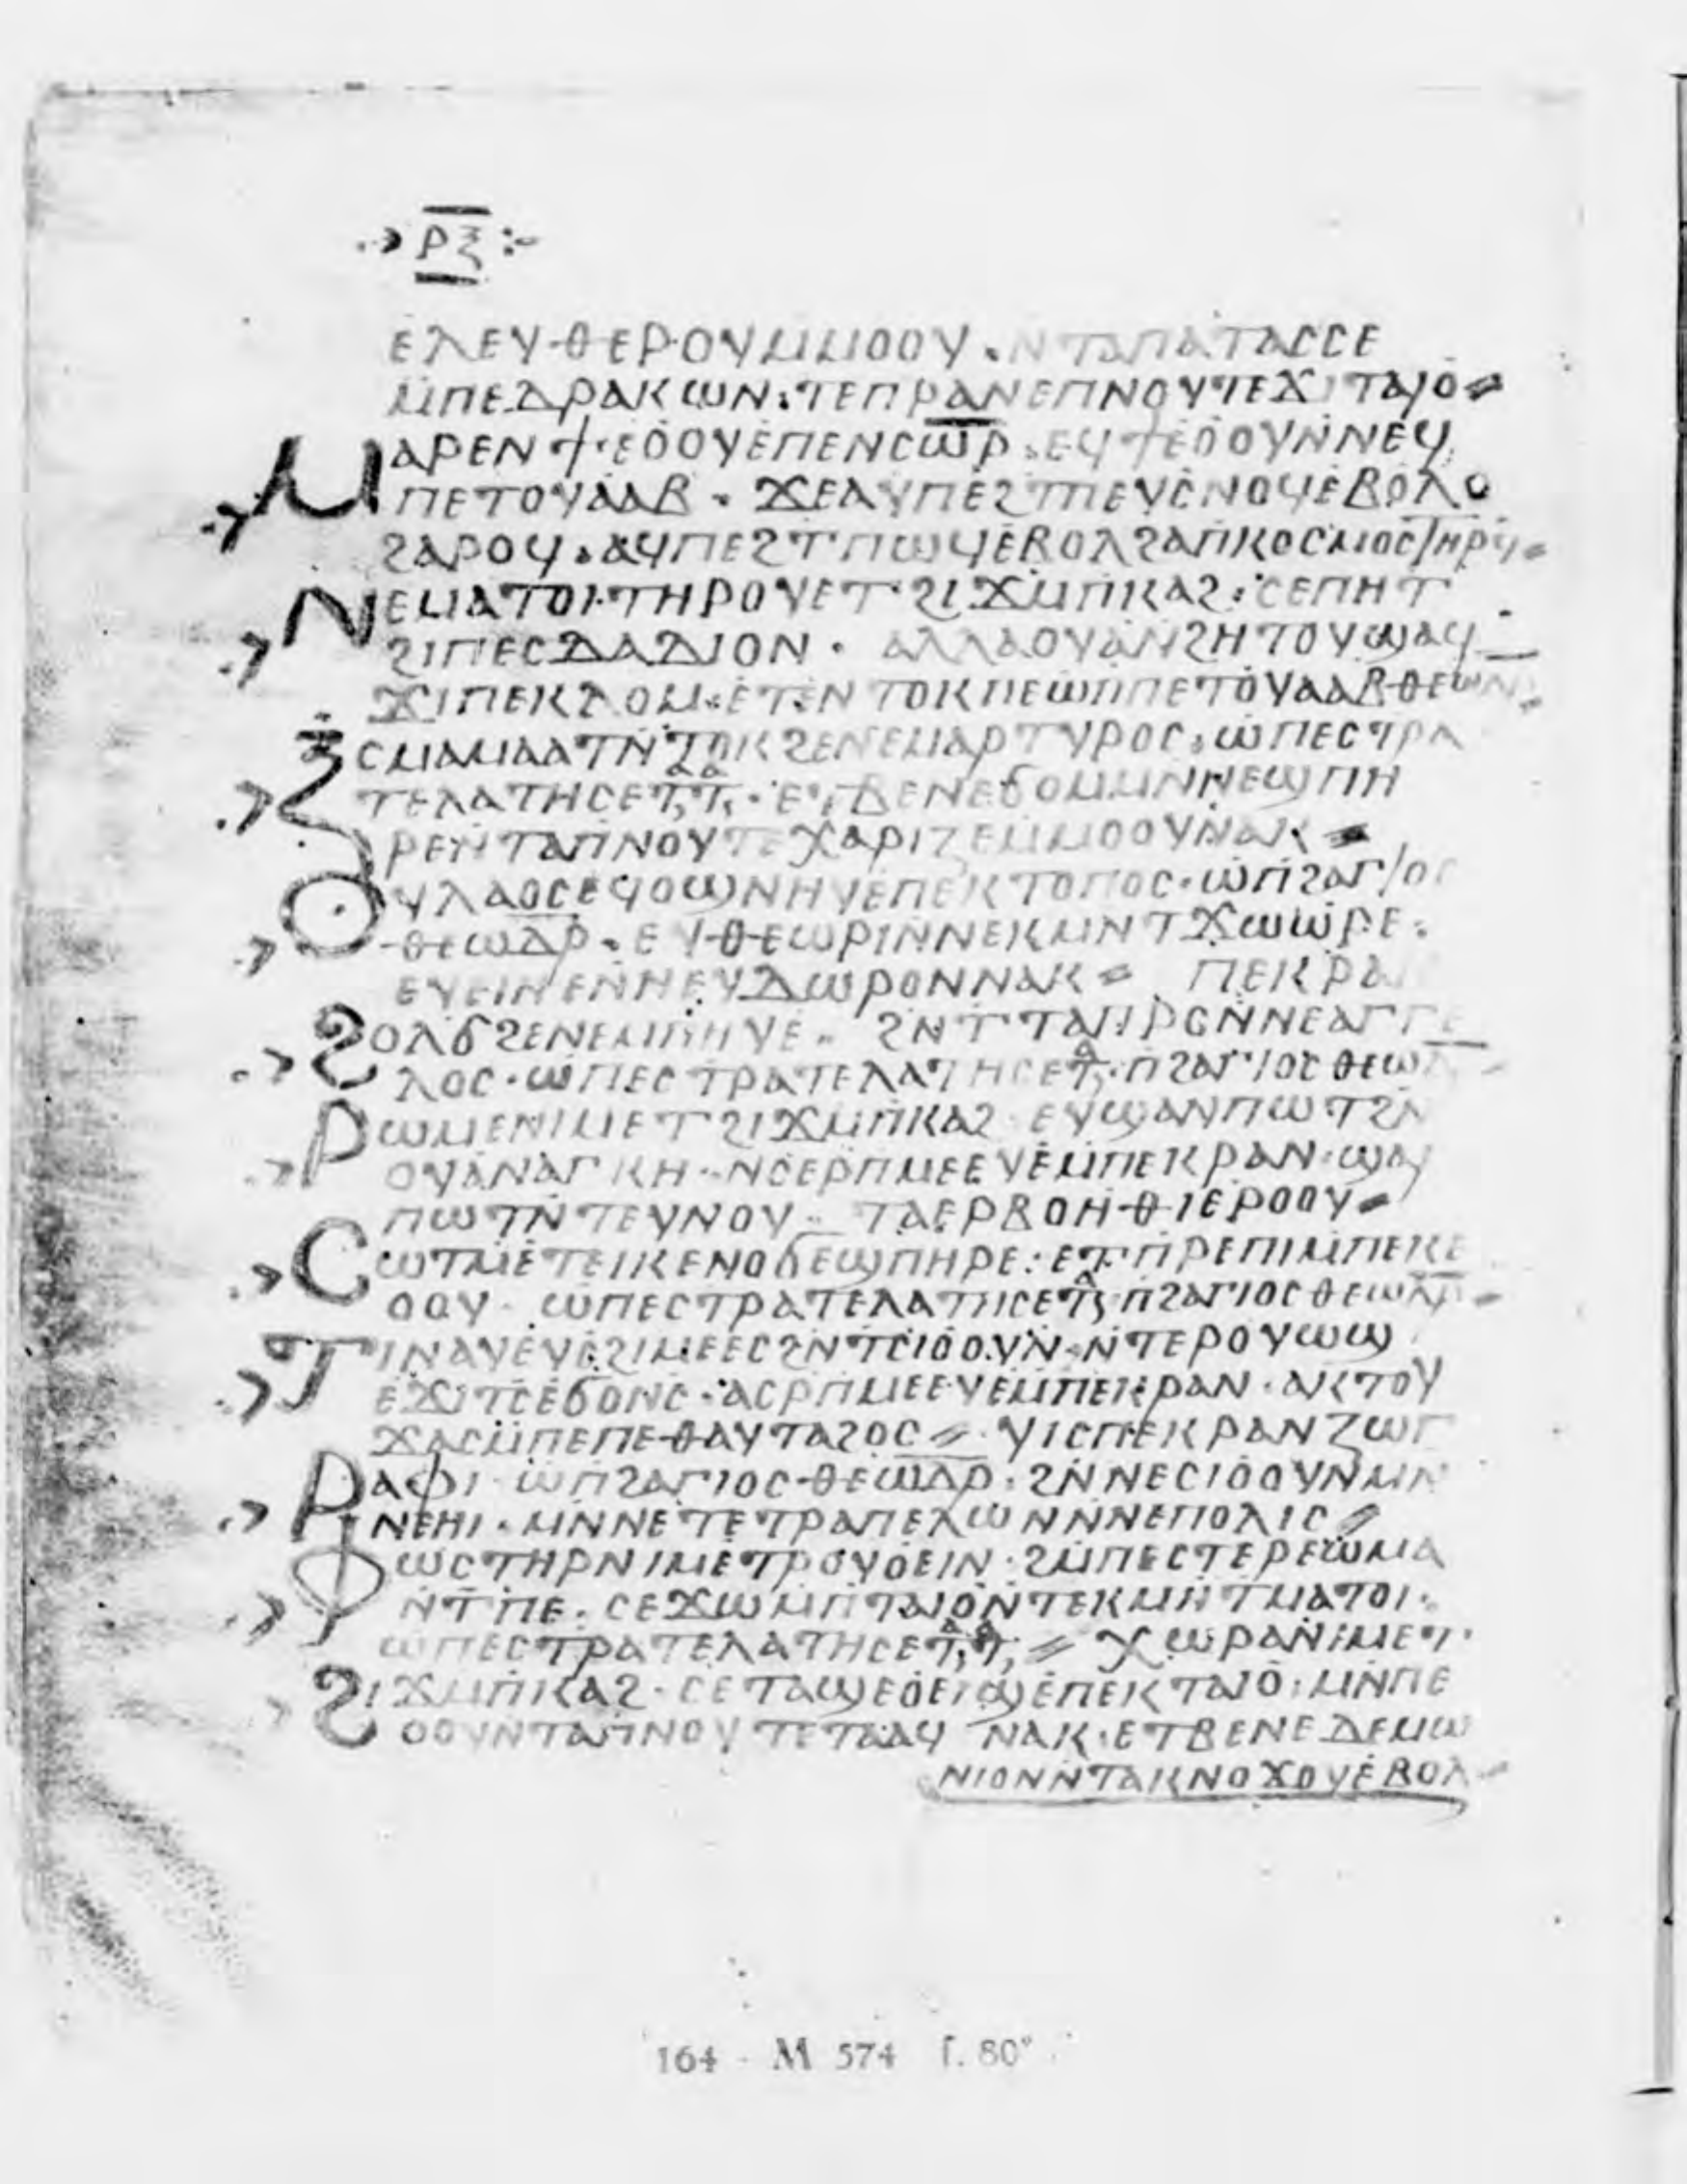 ⲣⲝ
ⲉⲗⲉⲩⲑⲉⲣⲟⲩⲙⲙⲟⲟⲩ · ⲛⲧⲁⲡⲁⲧⲁⲥⲥⲉ
ⲙⲡⲉⲇⲣⲁⲕⲱⲛ : ⲧⲉⲡⲣⲁⲛⲉⲡⲛⲟⲩⲧⲉϫⲓⲧⲁⲓⲟ
ⲙⲁⲣⲉⲛϯⲉⲟⲟⲩⲉⲡⲉⲛⲥⲱ̅ⲣ̅ · ⲉϥϯⲉⲟⲟⲩⲛⲛⲉϥ
ⲡⲉⲧⲟⲩⲁⲁⲃ · ϫⲉⲁⲩⲡⲉϩⲧⲡⲉⲩⲥⲛⲟϥⲉⲃⲟⲗ
ϩⲁⲣⲟϥ · ⲁϥⲡⲉϩⲧⲡⲱϥⲉⲃⲟⲗϩⲁⲡⲕⲟⲥⲙⲟⲥⲧⲏⲣϥ
ⲛⲉⲙⲁⲧⲟⲓⲧⲏⲣⲟⲩⲉⲧϩⲓϫⲙⲡⲕⲁϩ · ⲥⲉⲡⲏⲧ
ϩⲓⲡⲉⲥⲇⲁⲇⲓⲟⲛ · ⲁⲗⲗⲁⲟⲩⲁⲛϩⲏⲧⲟⲩϣⲁϥ
ϫⲓⲡⲉⲕⲗⲟⲙ · ⲉⲧⲉⲛⲧⲟⲕⲡⲉⲱⲡⲡⲉⲧⲟⲩⲁⲁⲃ
ⲝⲥⲙⲁⲙⲁⲁⲧⲛⲧⲟⲕϩⲉⲛⲉⲙⲁⲣⲧⲩⲣⲟⲥ · ⲱⲡⲉⲥⲧⲣⲁ
ⲧⲉⲗⲁⲧⲏⲥ · ⲉⲧⲃⲉⲛⲉϭⲟⲙⲙⲛⲛⲉϣⲡⲏ
ⲣⲉⲛⲧⲁⲡⲛⲟⲩⲧⲉⲭⲁⲣⲓⲍⲉⲙⲙⲟⲟⲩⲛⲁⲕ
ⲟⲩⲗⲁⲟⲥⲉϥⲟϣⲛⲏⲩⲉⲡⲉⲕⲧⲟⲡⲟⲥ · ⲱⲡϩⲁⲅⲓⲟⲥ
ⲑⲉⲱⲇⲣ · ⲉⲩⲑⲉⲱⲣⲓⲛⲛⲉⲕⲙⲛⲧϫⲱⲱⲣⲉ :
ⲉⲩⲉⲓⲛⲉⲛⲛⲉⲩⲇⲱⲣⲟⲛⲛⲁⲕ ⲡⲉⲕⲣⲁⲛ
ϩⲟⲗϭϩⲉⲛⲉⲙⲡⲏⲩⲉ · ϩⲛⲧⲧⲁⲡⲣⲟⲛⲛⲉⲁⲅⲅⲉ
ⲗⲟⲥ · ⲱⲡⲉⲥⲧⲣⲁⲧⲉⲗⲁⲧⲏⲥ · ⲡϩⲁⲅⲓⲟⲥ ⲑⲉⲱⲇ
ⲣⲱⲙⲉⲛⲓⲙⲉⲧϩⲓϫⲙⲡⲕⲁϩ ⲉⲩϣⲁⲛⲡⲱⲧϩⲛ
ⲟⲩⲁⲛⲁⲅⲕⲏ · ⲛⲥⲉⲣⲡⲙⲉⲉⲩⲉⲙⲡⲉⲕⲣⲁⲛ · ϣⲁϥ
ⲡⲱⲧⲛⲧⲉⲩⲛⲟⲩ · ⲧⲁⲉⲣⲃⲟⲏⲑⲓⲉⲣⲟⲟⲩ
ⲥⲱⲧⲙⲉⲧⲉⲓⲕⲉⲛⲟϭⲉϣⲡⲏⲣⲉ : ⲉⲧⲡⲣⲉⲡⲓⲙⲡⲉⲕⲉ
ⲟⲟⲩ · ⲱⲡⲉⲥⲧⲣⲁⲧⲉⲗⲁⲧⲏⲥ ⲡϩⲁⲅⲓⲟⲥ ⲑⲉⲱⲇⲣ
ⲧⲓⲛⲁⲩⲉⲩⲥϩⲓⲙⲉⲉⲥϩⲛⲧⲥⲓⲟⲟⲩⲛ · ⲛⲧⲉⲣⲟⲩⲱϣ
ⲉϫⲓⲧⲥⲉϭⲟⲛⲥ · ⲁⲥⲣⲡⲙⲉⲉⲩⲉⲙⲡⲉⲕⲣⲁⲛ · ⲁⲕⲧⲟⲩ
ϫⲁⲥⲙⲡⲉⲡⲉⲑⲁⲩⲧⲁϩⲟⲥ ⲩⲓⲥⲡⲉⲕⲣⲁⲛⲍⲱⲅ
ⲣⲁⲫⲓ · ⲱⲡϩⲁⲅⲓⲟⲥⲑⲉⲱⲇⲣ · ϩⲛⲛⲉⲥⲓⲟⲟⲩⲛⲙⲛ
ⲛⲉⲏⲓ · ⲙⲛⲛⲉⲧⲉⲧⲣⲁⲡⲉⲗⲱⲛⲛⲛⲉⲡⲟⲗⲓⲥ
ⲫⲱⲥⲧⲏⲣⲛⲓⲙⲉⲧⲣⲟⲩⲟⲉⲓⲛ · ϩⲙⲡⲉⲥⲧⲉⲣⲉⲱⲙⲁ
ⲛⲧⲡⲉ · ⲥⲉϫⲱⲙⲡⲧⲁⲓⲟⲛⲧⲉⲕⲙⲛⲧⲙⲁⲧⲟⲓ ·
ⲱⲡⲉⲥⲧⲣⲁⲧⲉⲗⲁⲧⲏⲥ ⲭⲱⲣⲁⲛⲓⲙⲉⲧ
ϩⲓϫⲙⲡⲕⲁϩ · ⲥⲉⲧⲁϣⲉⲟⲉⲓϣⲉⲡⲉⲕⲧⲁⲓⲟ · ⲙⲛⲡⲉ
ⲟⲟⲩⲛⲧⲁⲡⲛⲟⲩⲧⲉⲧⲁⲁϥ ⲛⲁⲕ · ⲉⲧⲃⲉⲛⲉⲇⲉⲙⲱ
ⲛⲓⲟⲛⲛⲧⲁⲕⲛⲟϫⲟⲩⲉⲃⲟⲗ
164 - M 574 f. 80ᵛ